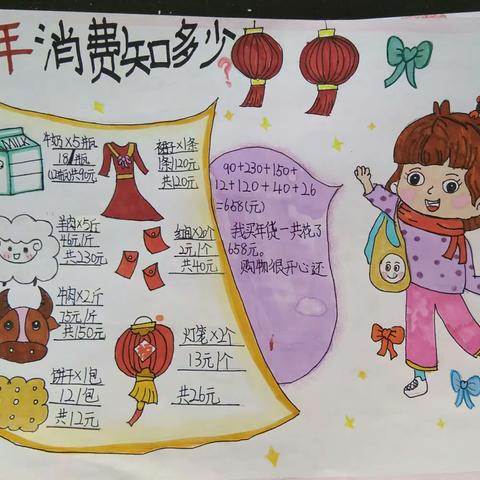 年消费知多少?
MILK
牛奶×5瓶
18/瓶
共90元
裙子×1条
1条120元
共120元
羊肉×5斤
46元/斤
共230元
红包×20个
2元/个
共40元
牛肉×2斤
75元/斤
共150元
灯笼×2个
13元/个
共26元
饼干×1包
12/包
共12元
90+230+150+
12+120+40+26
=668(元)
我买年货一共花了
658元。
购物很开心还